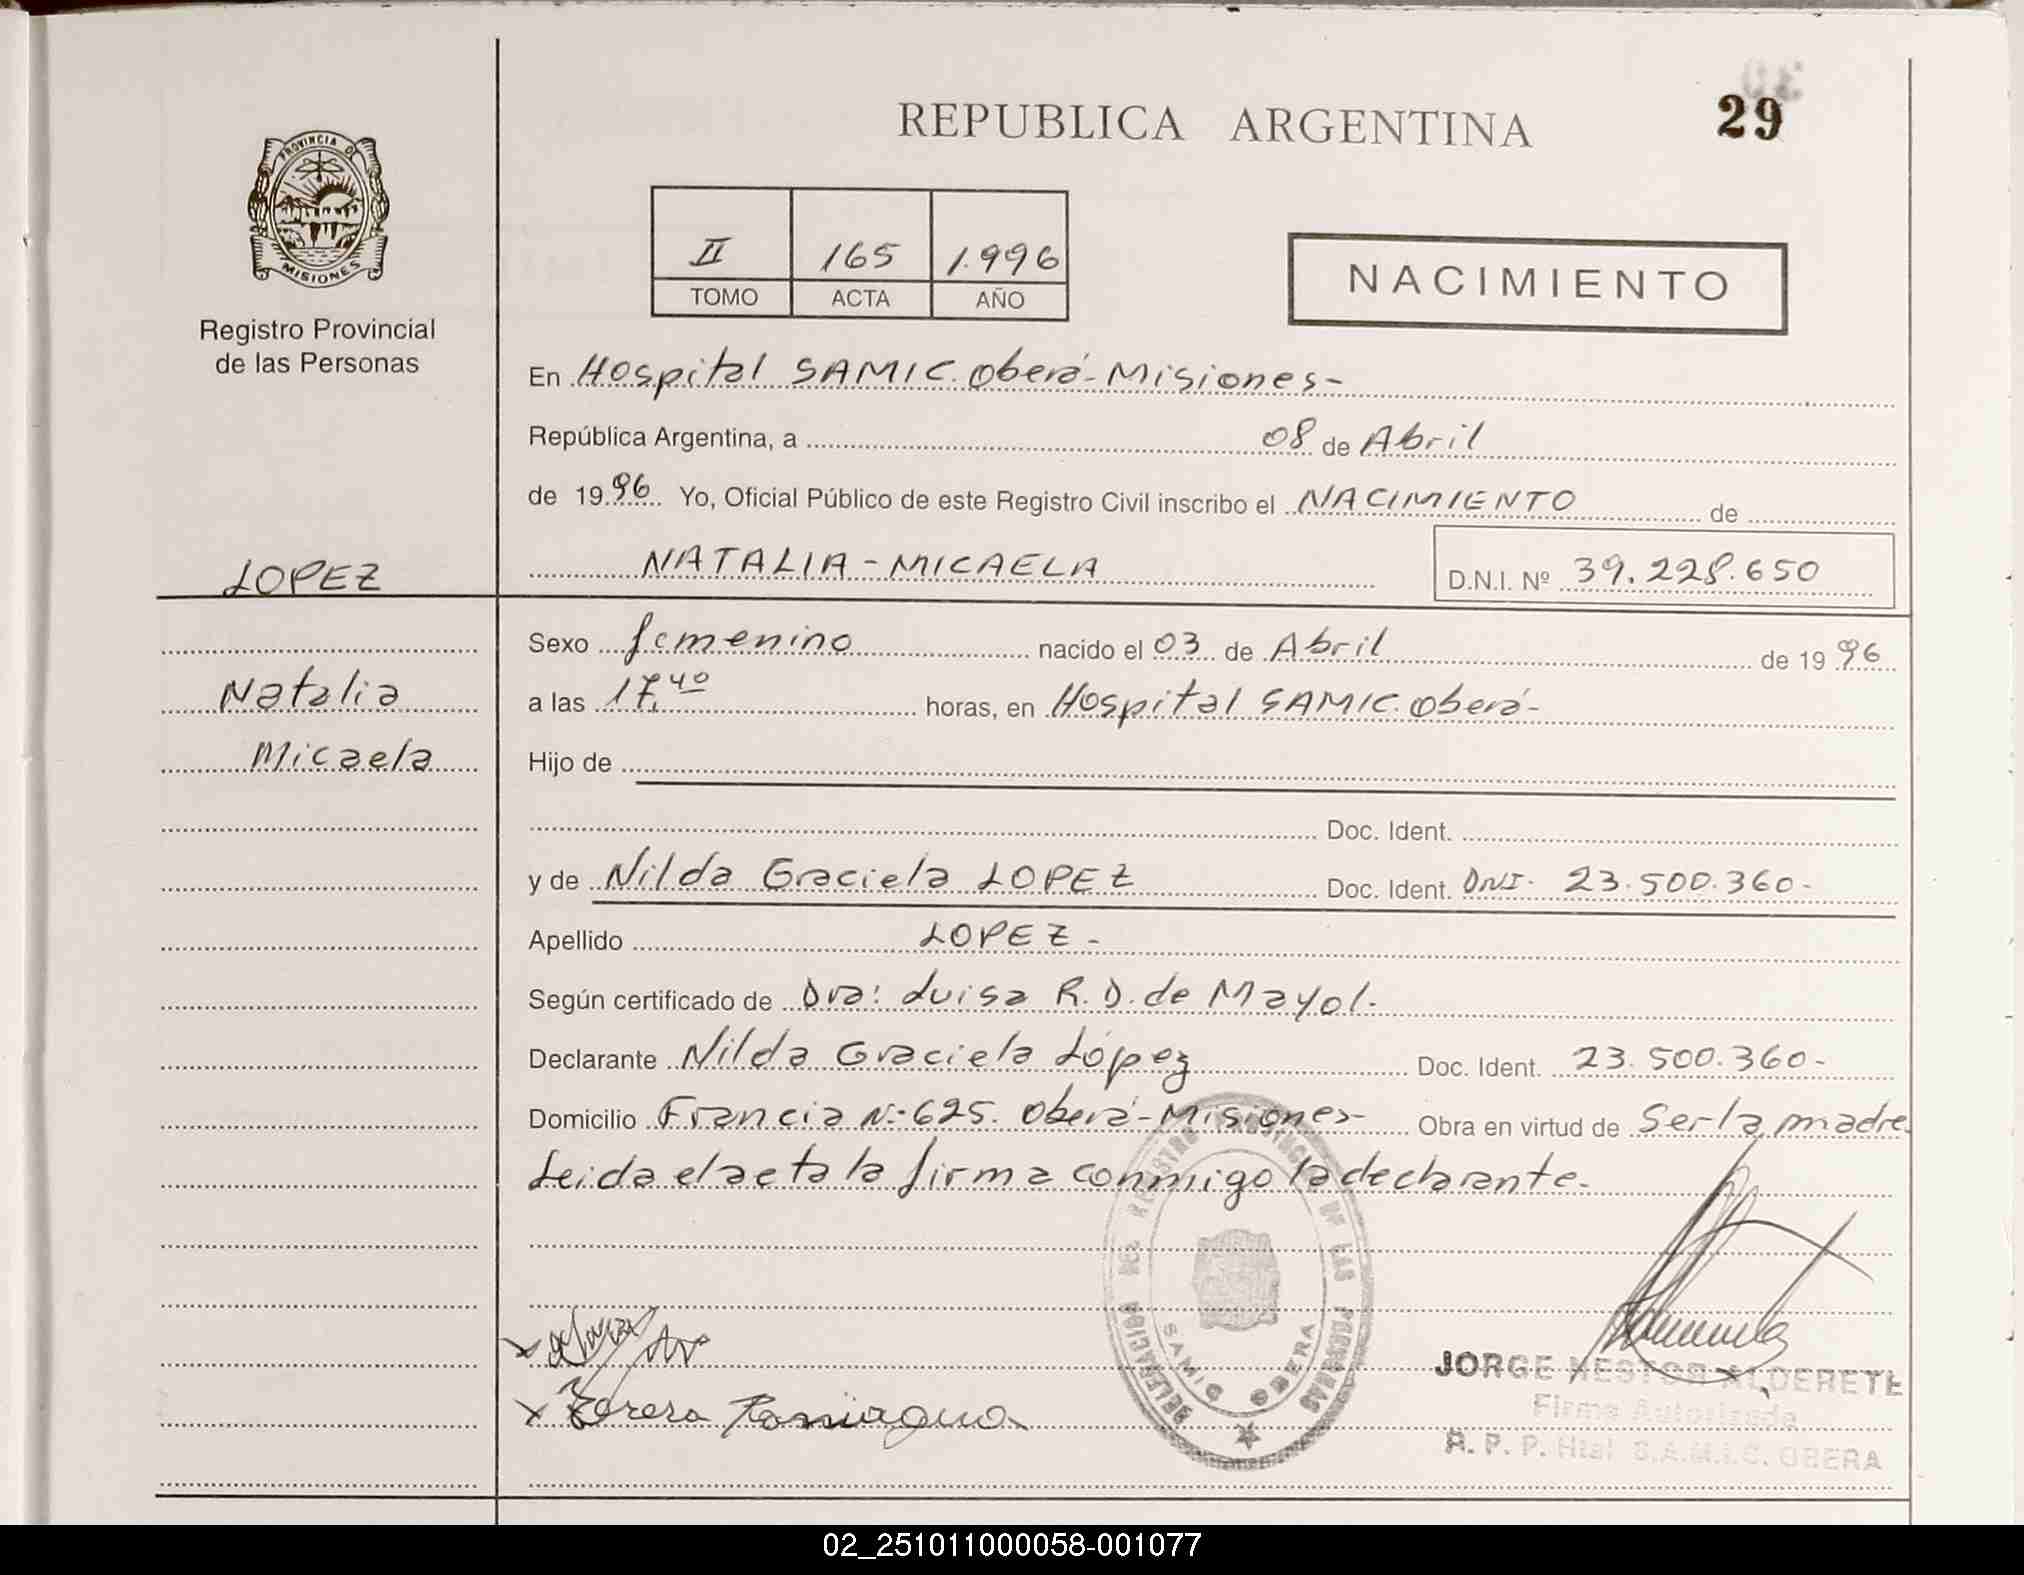 REPUBLICA ARGENTINA
29
PROVINCIA DE
MISIONES
Registro Provincial
de las Personas
II 165 1.996
TOMO ACTA AÑO
NACIMIENTO
En Hospital SAMIC. Oberá-Misiones-
República Argentina, a 08 de Abril
de 1996 Yo, Oficial Público de este Registro Civil inscribo el NACIMIENTO de
NATALIA-MICAELA D.N.I. Nº 39.228.650
LOPEZ
Natalia
Micaela
Sexo femenino nacido el 03 de Abril de 1996
a las 17,40 horas, en Hospital SAMIC. Oberá-
Hijo de
Doc. Ident.
y de Nilda Graciela LOPEZ Doc. Ident. DNI. 23.500.360-
Apellido LOPEZ-
Según certificado de Dra: Luisa R. D. de Mayol.
Declarante Nilda Graciela López Doc. Ident. 23.500.360-
Domicilio Francia N:625. Oberá-Misiones- Obra en virtud de Ser la madre.
Leida el acta la firma conmigo la declarante.
DELEGACION DEL REGISTRO PROVINCIAL DE LAS PERSONAS
SAMIC OBERA
JORGE NESTOR ALDERETE
Firma Autorizada
R. P. P. Htal S.A.M.I.C. OBERA
x Teresa
02_251011000058-001077